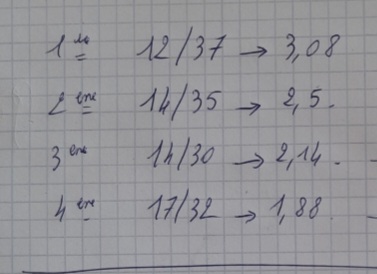 1 ère 12/37 → 3,08
2 ème 14/35 → 2,5.
3 ème 14/30 → 2,14.
4 ème 17/32 → 1,88